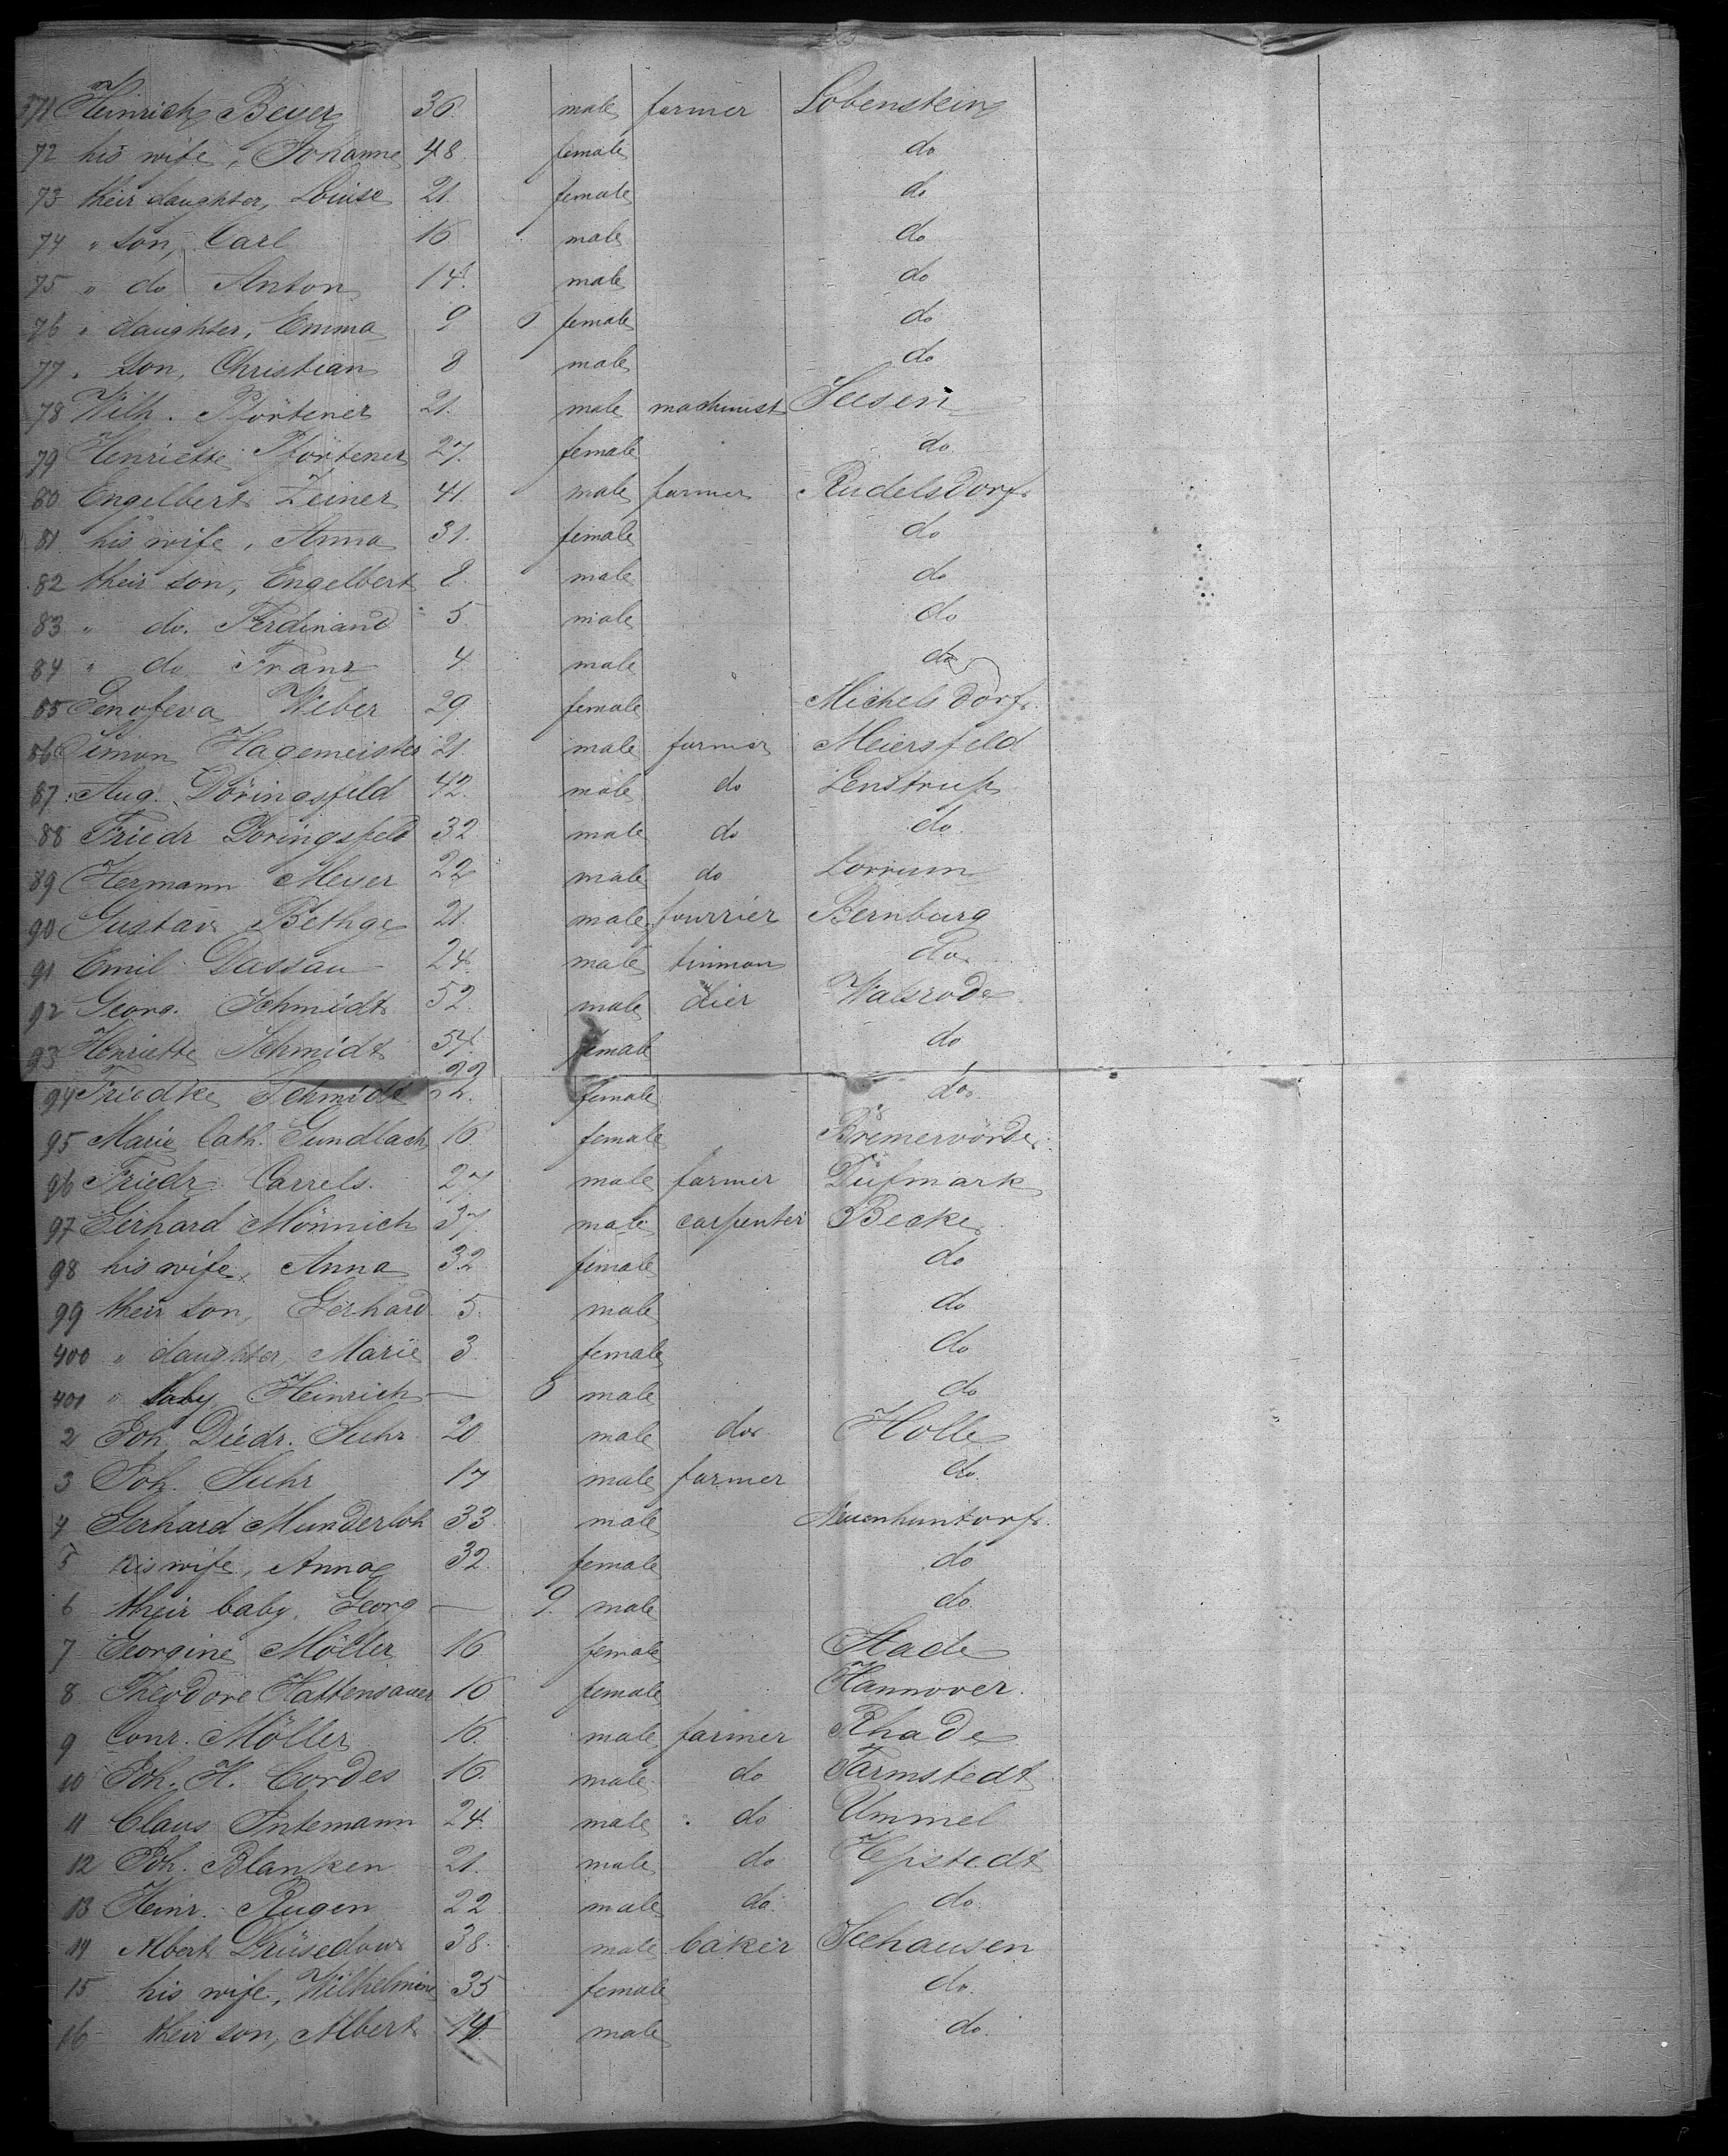 371 Heinrich Beyer 36. male farmer Lobenstein
72 his wife, Johanne 48. female do
73 their daughter, Louise 21. female do
74 " son, Carl 16 male do
75 " do Anton 14. male do
76 " daughter, Emma 9 6 female do
77 " son, Christian 8 male do
78 Wilh. Pförtener 21. male machinist Seesen
79 Henriette Pförtener 27. female do.
80 Engelbert Zeiner 41. male farmer Rudelsdorf.
81 his wife, Anna 31. female do
82 their son, Engelbert 8. male do
83 " do. Ferdinand 5. male do
84 " do Franz 4. male do
85 Genofeva Weber 29 female Michelsdorf.
86 Simon Hagemeister 21. male farmer Meiersfeld
87 Aug. Döringsfeld 42. male do Lenstrup
88 Friedr Doringsfeld 32. male do do.
89 Hermann Meyer 22 male do Lorrum
90 Gustav Bethge 21. male fourrier Bernburg
91 Emil Dassau 24. male tinman do.
92 Georg. Schmidt 52. male dier Walsrode
93 Henriette Schmidt 54. female do
94 Friedke Schmidt 22. female do.
95 Marie Cath. Gundlach 16. female Bremervörde.
96 Friedr. Carrels. 27. male farmer Düfmark
97 Gerhard Mönnich 37. male carpenter Becke
98 his wife, Anna 32. female do
99 their son, Gerhard 5. male do
400 " daughter, Marie 3. female do
401 " baby, Heinrich — 6 male do
2 Joh. Diedr. Suhr 20 male do. Holle
3 Joh. Suhr 17 male farmer do.
4 Gerhard Munderloh 33. male Neuenhuntorf.
5 his wife, Anna 32. female do
6 their baby, Georg — 9. male do.
7 Georgine Möller 16 female Stade
8 Theodore Hattensauer 16 female Hannover.
9 Conr. Möller 16. male farmer Rhade
10 Joh. H. Cordes 16. male do Tarmstedt
11 Claus Intemann 24. male do Ummel
12 Joh. Blanken 21. male do Hepstedt
13 Heinr. Rugen 22 male do. do.
14 Albert Drüsedow 38. male baker Seehausen
15 his wife, Wilhelmine 35 female do.
16 their son, Albert 14. male do.